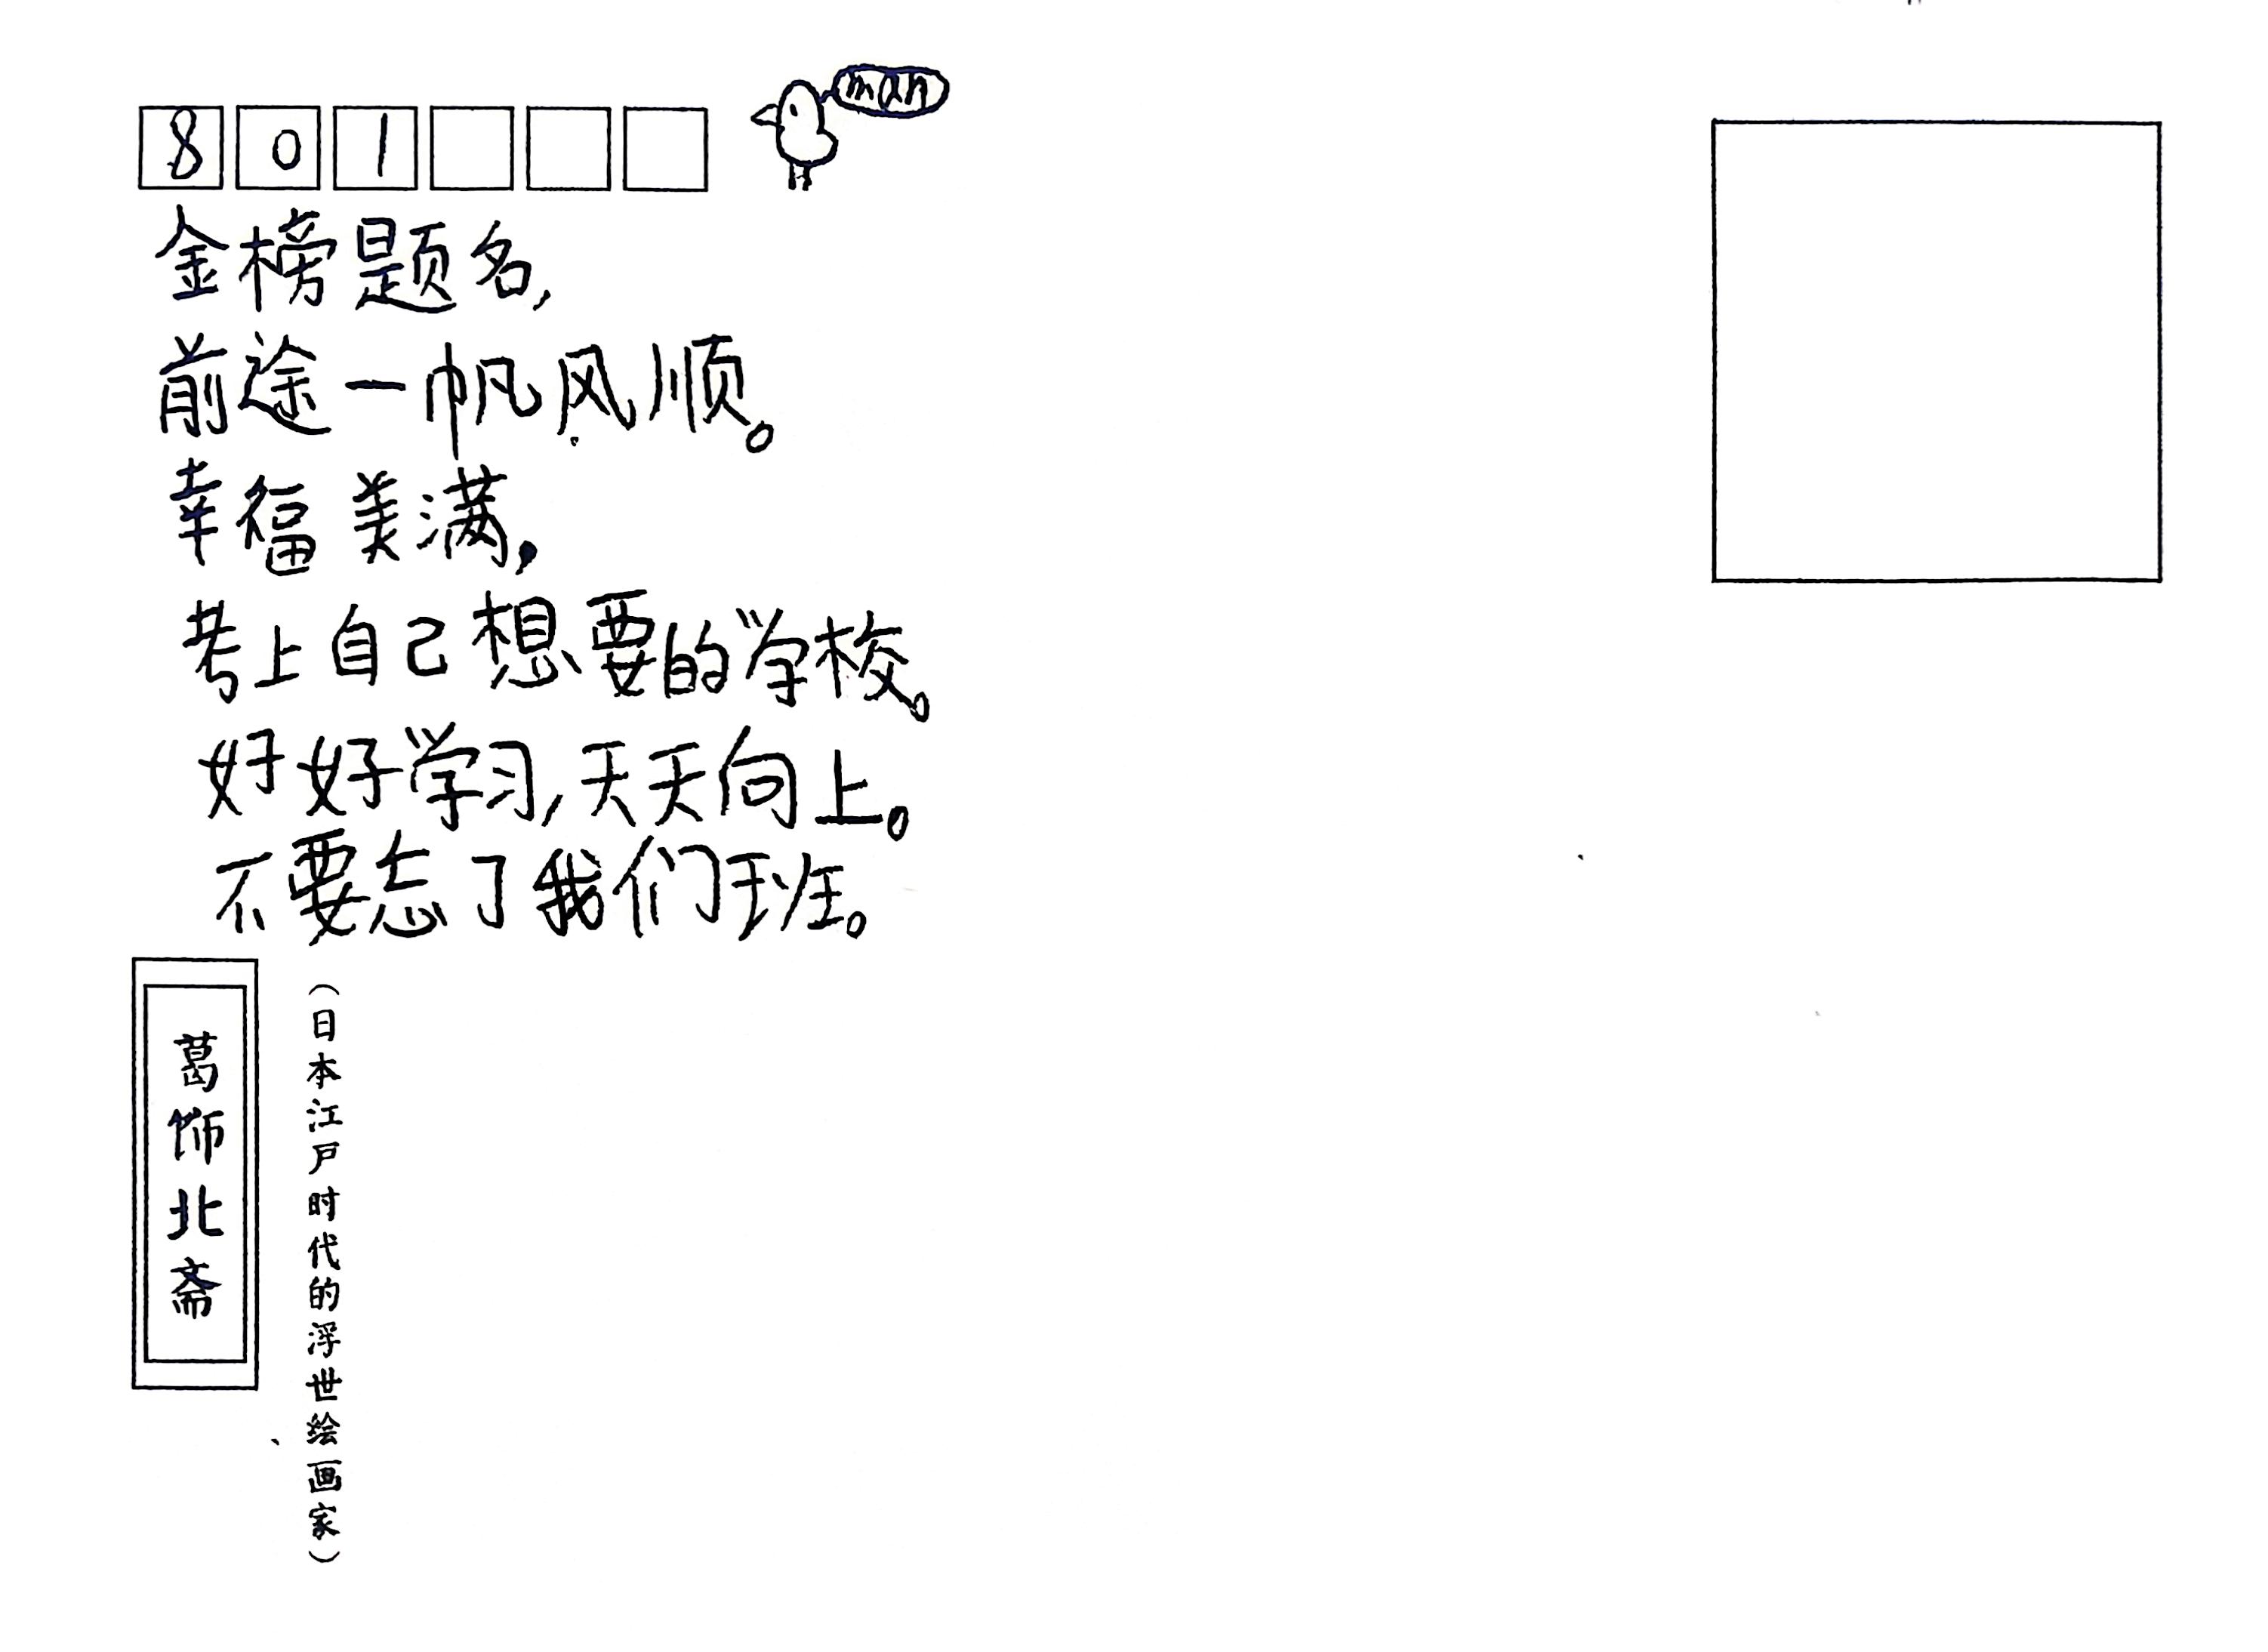 801
man
金榜题名,
前途一帆风顺。
幸福美满,
考上自己想要的学校。
好好学习,天天向上。
不要忘了我们班。
葛饰北斋
(日本江户时代的浮世绘画家)